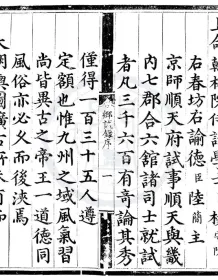 右春坊右諭德臣陸簡主
京師順天府試事順天與畿
內七郡合六館諸司士就試
者凡三千六百有奇論其秀
鄉試錄序
一
僅得一百三十五人遵
定額也惟九州之域風氣習
尚皆異古之帝王一道德同
風俗亦必久而後浹焉